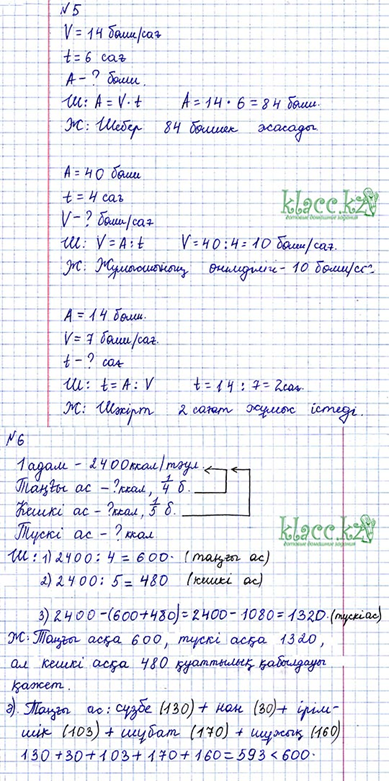 №5
V = 14 бөлш/сағ
t = 6 сағ
A - ? бөлш.
Ш: A = V · t A = 14 · 6 = 84 бөлш.
Ж: Шебер 84 бөлшек жасады.
A = 40 бөлш
t = 4 сағ
V - ? бөлш/сағ
Ш: V = A : t V = 40 : 4 = 10 бөлш/сағ.
Ж: Жұмысшының өнімділігі - 10 бөлш/сағ.
klacc.kz
готовые домашние задания
A = 14 бөлш.
V = 7 бөлш/сағ.
t - ? сағ
Ш: t = A : V t = 14 : 7 = 2 сағ.
Ж: Шәкірт 2 сағат жұмыс істеді.
№6
1 адам - 2400 ккал/тәул
Таңғы ас - ? ккал, 1/4 б.
Кешкі ас - ? ккал, 1/5 б.
Түскі ас - ? ккал
klacc.kz
готовые домашние задания
Ш: 1) 2400 : 4 = 600. (таңғы ас)
2) 2400 : 5 = 480 (кешкі ас)
3) 2400 - (600 + 480) = 2400 - 1080 = 1320. (түскі ас)
Ж: Таңғы асқа 600, түскі асқа 1320,
ал кешкі асқа 480 қуаттылық қабылдауы
қажет.
ә) Таңғы ас: сүзбе (130) + нан (30) + ірім-
шік (103) + шұбат (170) + шұжық (160)
130 + 30 + 103 + 170 + 160 = 593 < 600.